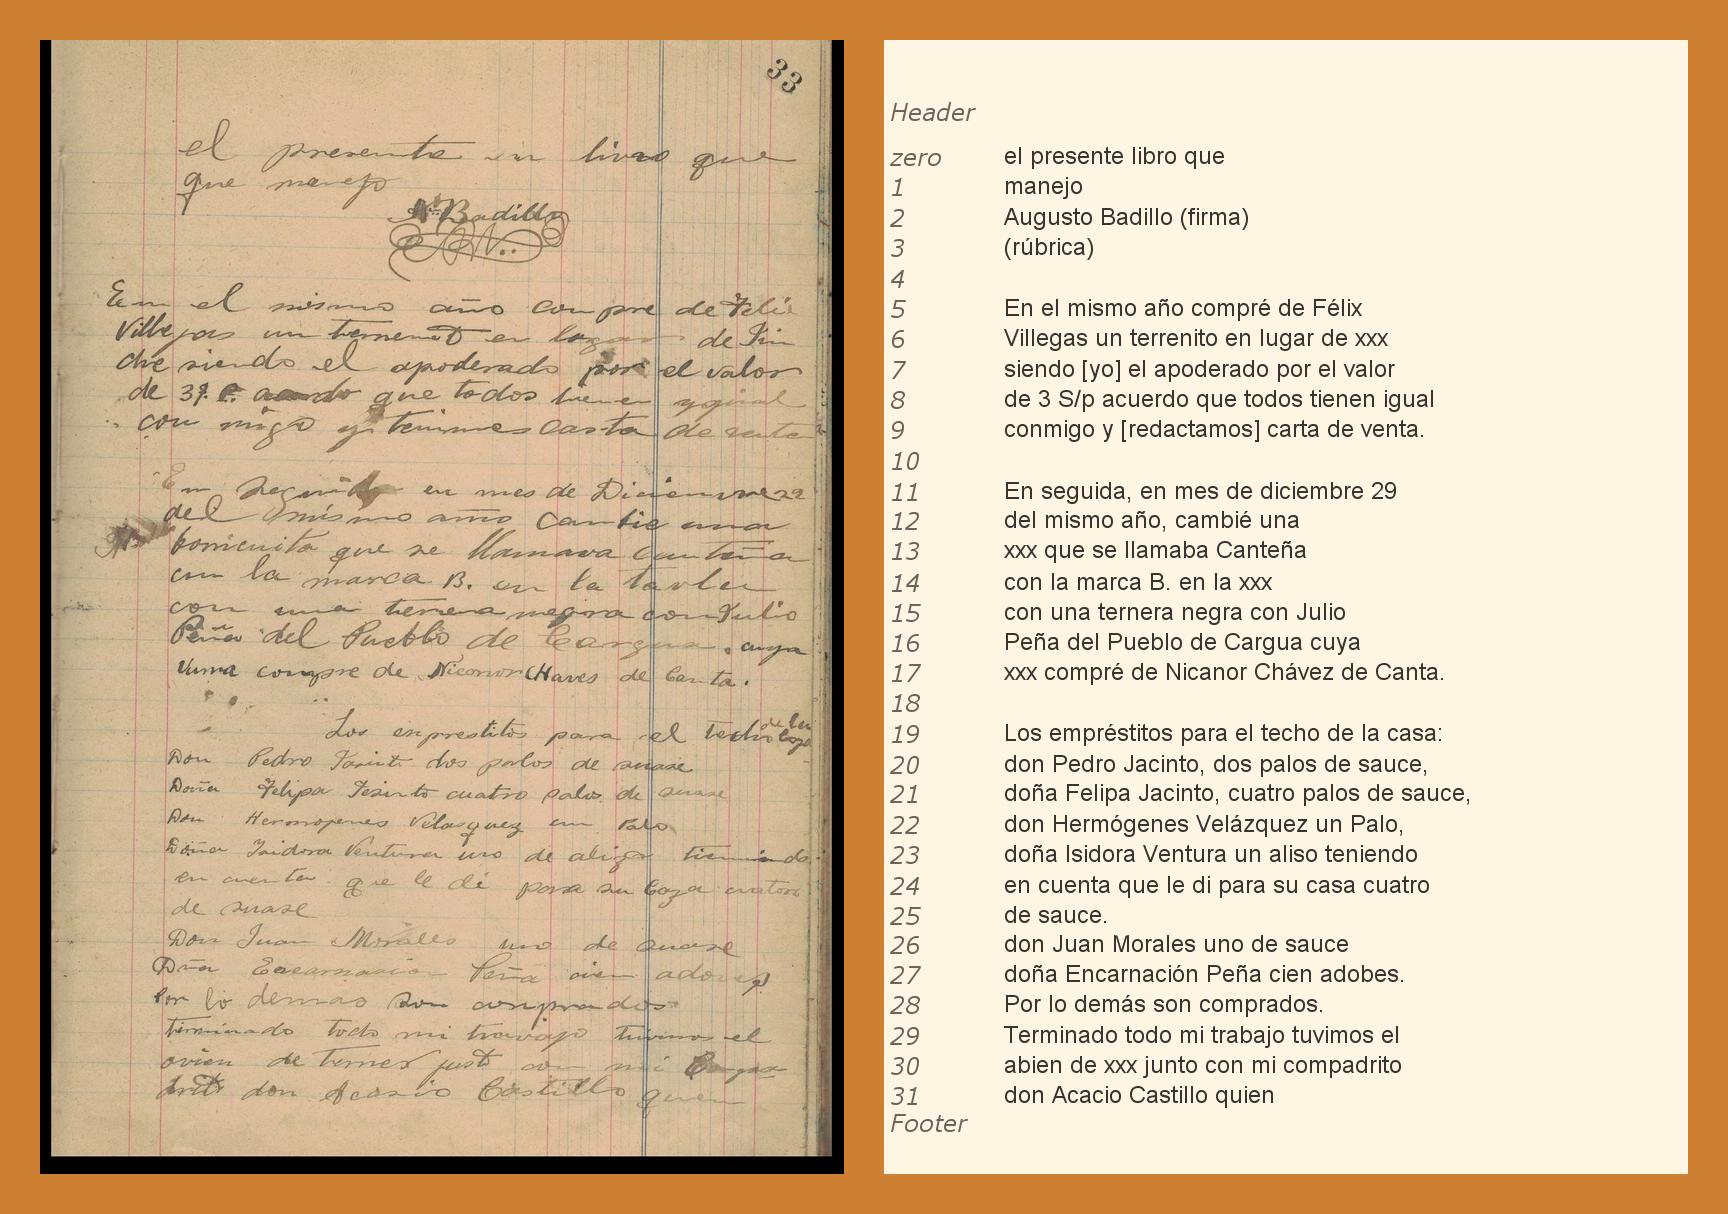 33
el presente en libro que
que manejo
A. Badillo
En el mismo año compre de Feliz
Villegas un terreno en lugar de Pin
che siendo el apoderado por el valor
de que todos tienen ygual
con migo y tenimes carta de venta
En Seguida en mes de Diciembre 29
del mismo año canbie una
que se llamava Canteña
con la marca B. en la tavla
con una ternera negra con Julio
Peña del Pueblo de Cargua. cuya
compre de Nicanor CHaves de Canta.
Los enprestitos para el techo de la caza
Don Pedro Jasinto dos palos de suase
Doña Felipa Jesinto cuatro palos de suase
Don Hermogenes Velasquez un Palo
Doña Isidora Ventura uno de alizo tieniendo
en cuenta que le dí para su Caza cuatro
de suase
Don Juan Morales uno de suase
Dña Encarnación Peña cien adoves
Por lo demas son conprados
terminado todo mi travajo tuvimos el
de junto con mi Conpa
drito don Acasio Castillo quien
Header
zero el presente libro que
1 manejo
2 Augusto Badillo (firma)
3 (rúbrica)
4
5 En el mismo año compré de Félix
6 Villegas un terrenito en lugar de xxx
7 siendo [yo] el apoderado por el valor
8 de 3 S/p acuerdo que todos tienen igual
9 conmigo y [redactamos] carta de venta.
10
11 En seguida, en mes de diciembre 29
12 del mismo año, cambié una
13 xxx que se llamaba Canteña
14 con la marca B. en la xxx
15 con una ternera negra con Julio
16 Peña del Pueblo de Cargua cuya
17 xxx compré de Nicanor Chávez de Canta.
18
19 Los empréstitos para el techo de la casa:
20 don Pedro Jacinto, dos palos de sauce,
21 doña Felipa Jacinto, cuatro palos de sauce,
22 don Hermógenes Velázquez un Palo,
23 doña Isidora Ventura un aliso teniendo
24 en cuenta que le di para su casa cuatro
25 de sauce.
26 don Juan Morales uno de sauce
27 doña Encarnación Peña cien adobes.
28 Por lo demás son comprados.
29 Terminado todo mi trabajo tuvimos el
30 abien de xxx junto con mi compadrito
31 don Acacio Castillo quien
Footer